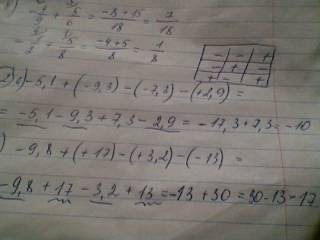 -4/9 + 5/6 = (-8+15)/18 = 7/18
+ 5/8 = (-4+5)/8 = 1/8
- - +
- + -
+ - -
-5,1 + (-9,3) - (-7,3) - (+2,9) =
= -5,1 - 9,3 + 7,3 - 2,9 = -17,3 + 7,3 = -10
) -9,8 + (+17) - (+3,2) - (-13) =
-9,8 + 17 - 3,2 + 13 = -13 + 30 = 30 - 13 = 17